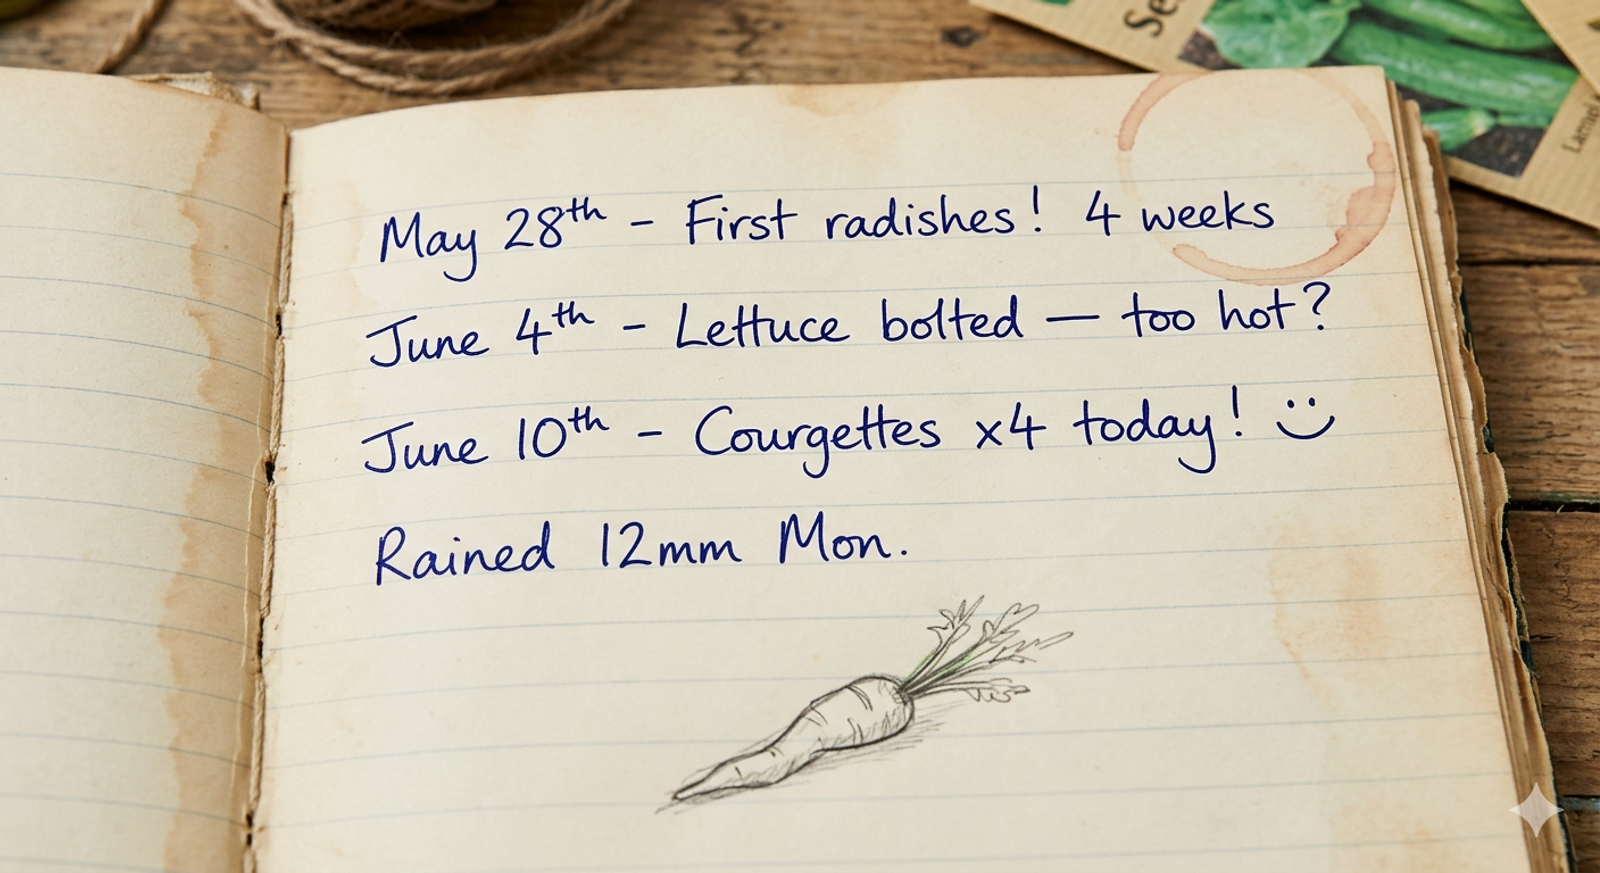 May 28th - First radishes! 4 weeks
June 4th - Lettuce bolted — too hot?
June 10th - Courgettes x4 today! :)
Rained 12mm Mon.